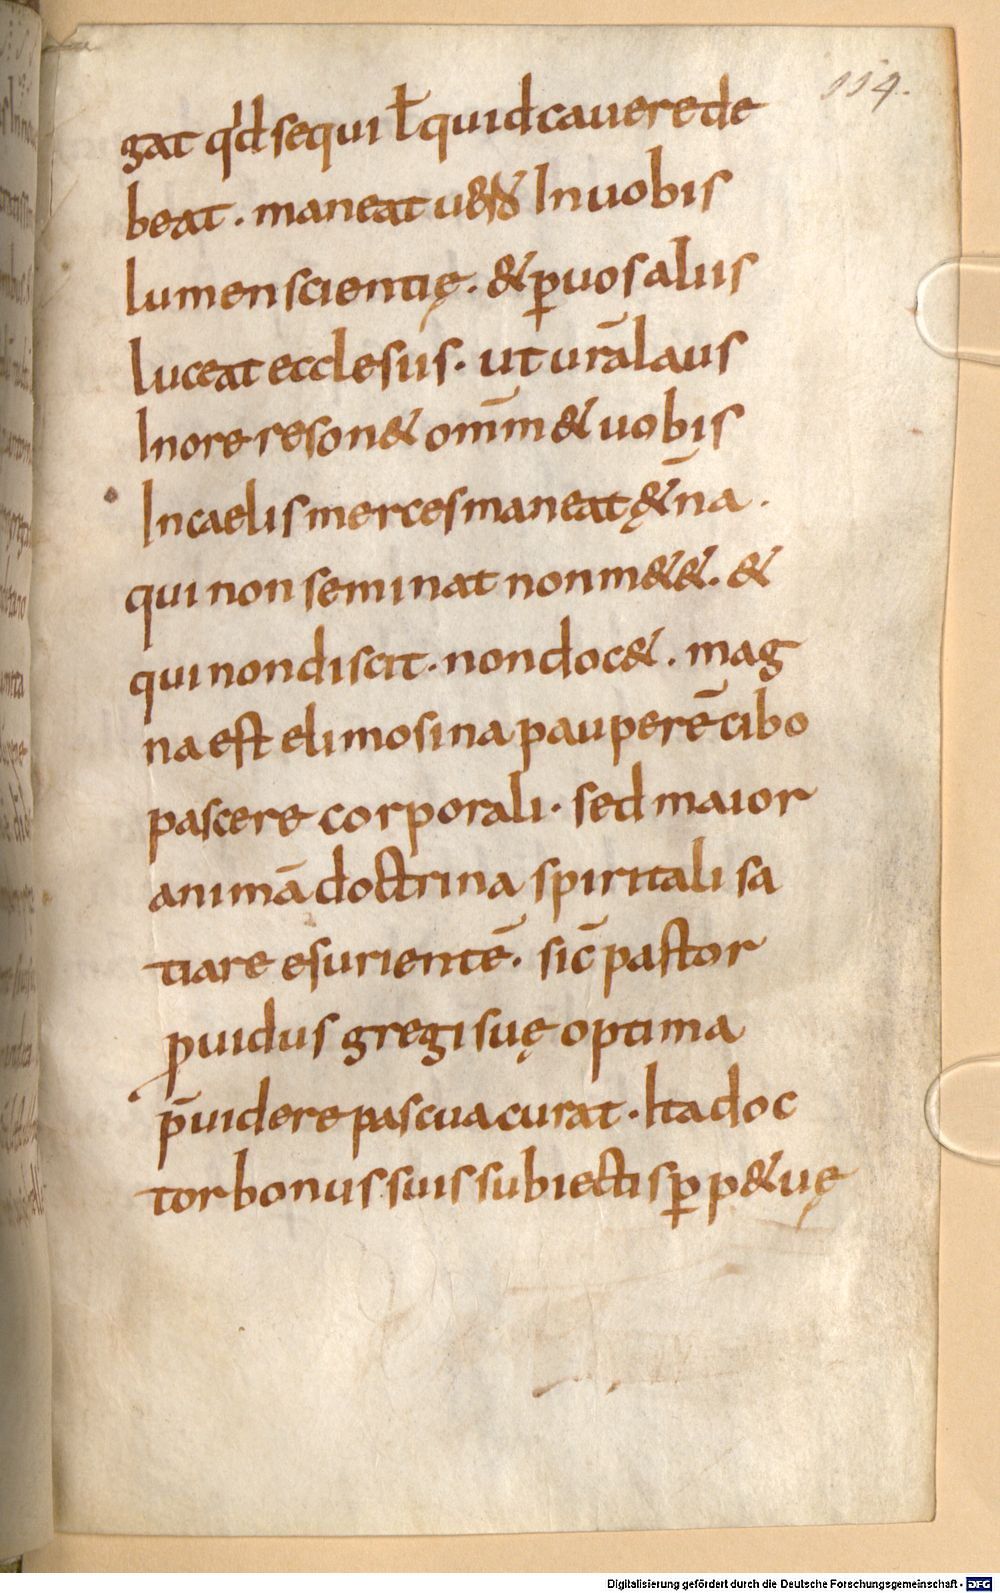 114.
gat q'd sequi ł quid cauere de
beat. maneat u&& In uobis
lumen scientię. & ꝑ uos aliis
luceat ecclesiis. ut urā laus
In ore reson& om̄m & uobis
In caelis merces maneat ę&n̄a.
qui non seminat non m&&. &
qui non discit. non doc&. mag
na est elimosina pauperē cibo
pascere corporali. sed maior
animā doctrina spiritali sa
tiare esurientē. sic̄ pastor
ꝓuidus gregi suę optima
p̄uidere pascua curat. Ita doc
tor bonus suis subiectis ꝑp&uę
Digitalisierung gefördert durch die Deutsche Forschungsgemeinschaft - DFG